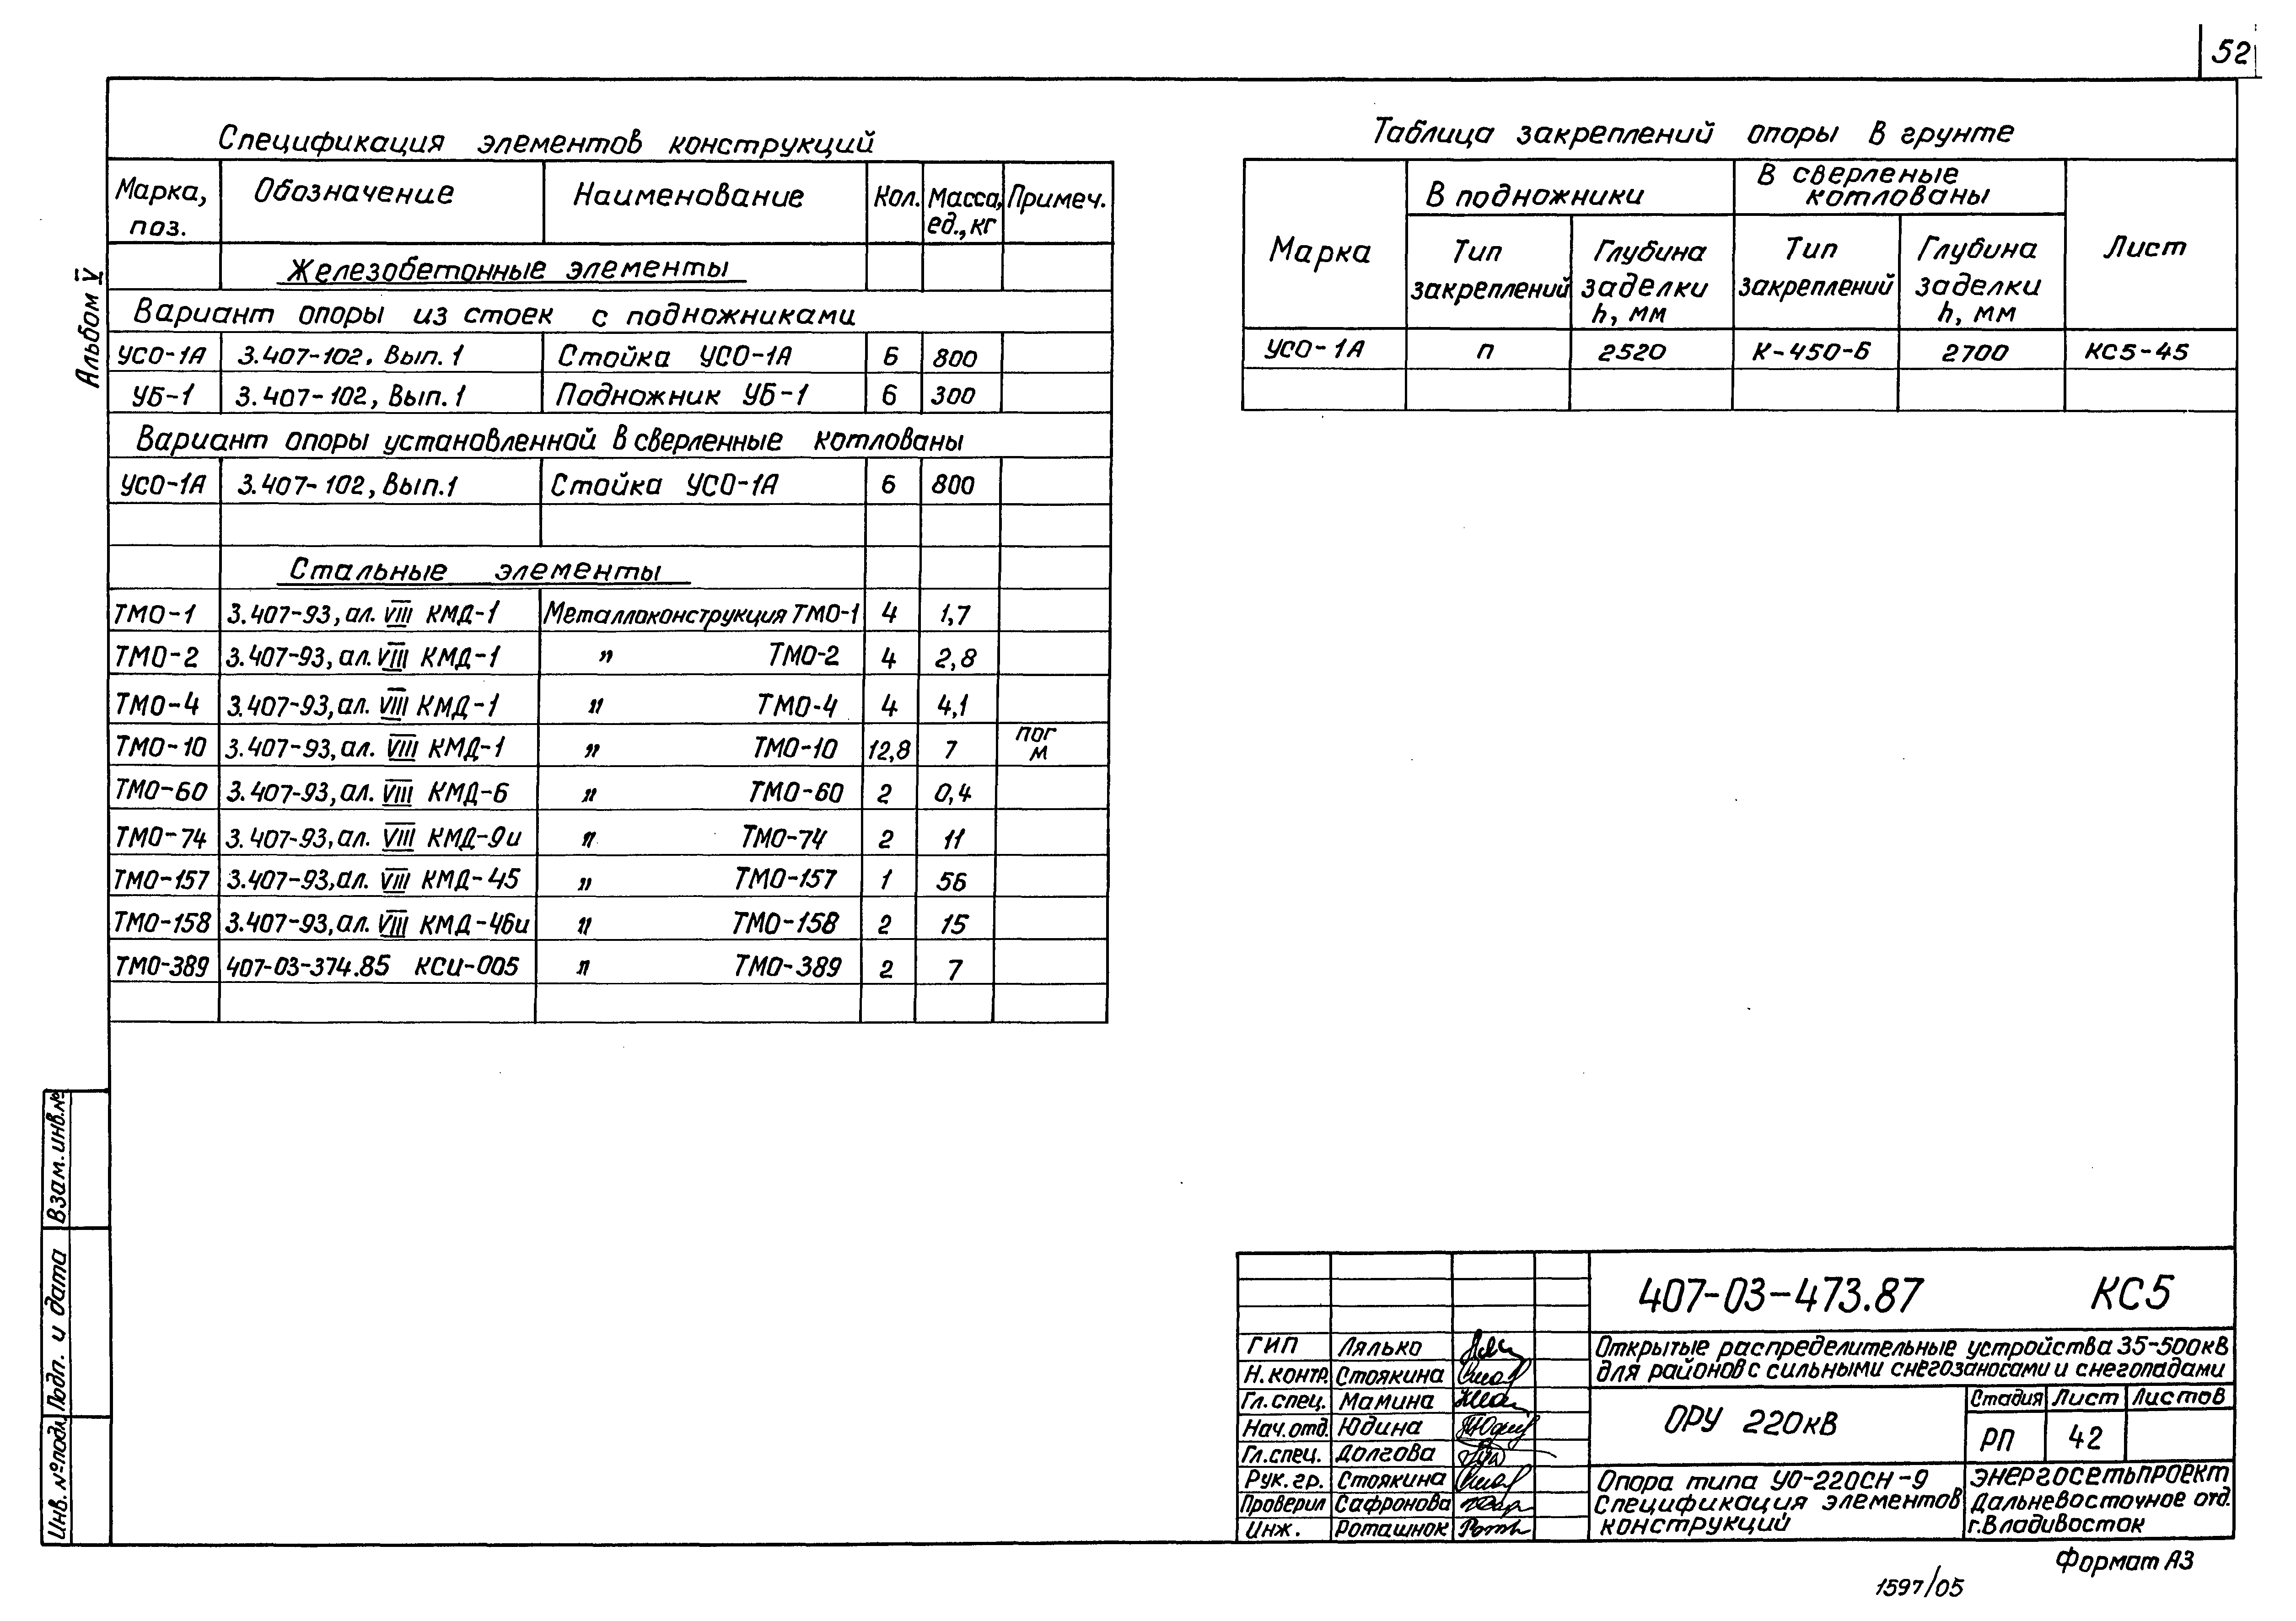 52
Альбом V
Спецификация элементов конструкций
Марка, поз. Обозначение Наименование Кол. Масса, ед., кг Примеч.
Железобетонные элементы
Вариант опоры из стоек с подножниками
УСО-1А 3.407-102. Вып.1 Стойка УСО-1А 6 800
УБ-1 3.407-102, Вып.1 Подножник УБ-1 6 300
Вариант опоры установленной в сверленные котлованы
УСО-1А 3.407-102, Вып.1 Стойка УСО-1А 6 800
Стальные элементы
ТМО-1 3.407-93, ал. VIII КМД-1 Металлоконструкция ТМО-1 4 1,7
ТМО-2 3.407-93, ал. VIII КМД-1 „ ТМО-2 4 2,8
ТМО-4 3.407-93, ал. VIII КМД-1 „ ТМО-4 4 4,1
ТМО-10 3.407-93, ал. VIII КМД-1 „ ТМО-10 12,8 7 пог м
ТМО-60 3.407-93, ал. VIII КМД-6 „ ТМО-60 2 0,4
ТМО-74 3.407-93, ал. VIII КМД-9и „ ТМО-74 2 11
ТМО-157 3.407-93, ал. VIII КМД-45 „ ТМО-157 1 56
ТМО-158 3.407-93, ал. VIII КМД-46и „ ТМО-158 2 15
ТМО-389 407-03-374.85 КСИ-005 „ ТМО-389 2 7
Таблица закреплений опоры в грунте
Марка В подножники В сверленые котлованы Лист
Тип закреплений Глубина заделки h, мм Тип закреплений Глубина заделки h, мм
УСО-1А п 2520 К-450-Б 2700 КС5-45
Взам. инв.№
Подп. и дата
Инв. №подл.
407-03-473.87 КС5
ГИП Лялько
Н.контр. Стоякина
Гл.спец. Мамина
Нач.отд. Юдина
Гл.спец. Долгова
Рук.гр. Стоякина
Проверил Сафронова
Инж. Роташнюк
Открытые распределительные устройства 35-500кВ
для районов с сильными снегозаносами и снегопадами
ОРУ 220кВ
Стадия Лист Листов
РП 42
Опора типа УО-220СН-9
Спецификация элементов
конструкций
Энергосетьпроект
Дальневосточное отд.
г.Владивосток
Формат А3
1597/05